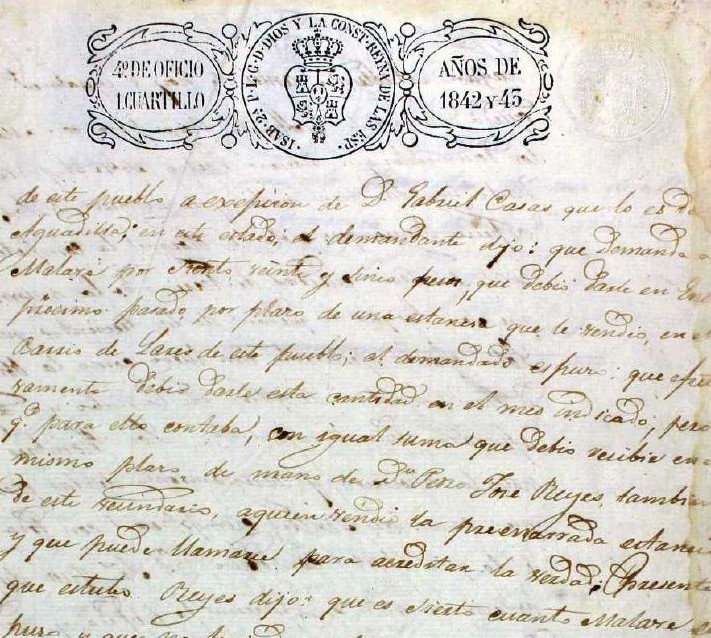 4º DE OFICIO
1. CUARTILLO
ISAB. 2ª P. L. G. D. DIOS Y LA CONST. REYNA DE LAS ESP.
AÑOS DE
1842 Y 43
de este pueblo a exepicion de D. Gabriel Casas que lo es de
Aguadilla; en este estado, el demandante dijo: que Demanda a
Malare por siento veinte y sinco pesos, que debió darle en
procsimo pasado por plazo de una estansia que le vendio, en el
Barrio de Lares de este pueblo; el demandado espuso: que efec
vamente debió darle esta cantidad en el mes indicado; pero
qe. para ello contaba, con igual suma que debio recibir en
mismo plazo, de mano de Dn. Jose Reyes, tambien
de este vecindario, a quien vendio la preenarrada estansia
y que puede llamarse para acreditar la verdad; Presente
que estubo Reyes dijo: que es sierto cuanto Malare
puso y que